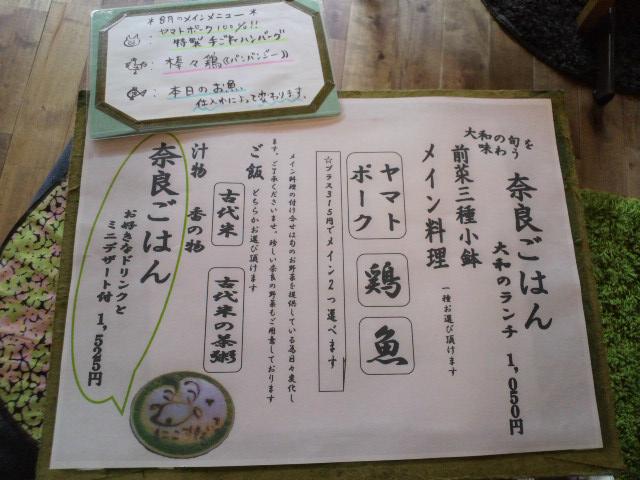 *8月のメインメニュー*
ヤマトポーク100%!!
特製手ごねハンバーグ
:棒々鶏《バンバンジー》
:本日のお魚
仕入れによって変わります。
大和の旬を
味わう
奈良ごはん
大和のランチ 1,050円
前菜三種小鉢
メイン料理 一種お選び頂けます
ヤマトポーク
鶏
魚
☆プラス315円でメイン2つ選べます
メイン料理の付け合せは旬のお野菜を提供している為日々変化し
ます。ご了承くださいませ。珍しい奈良の野菜もご用意しております
ご飯 どちらかお選び頂けます
古代米
古代米の茶粥
汁物 香の物
奈良ごはん
お好きなドリンクと
ミニデザート付 1,525円